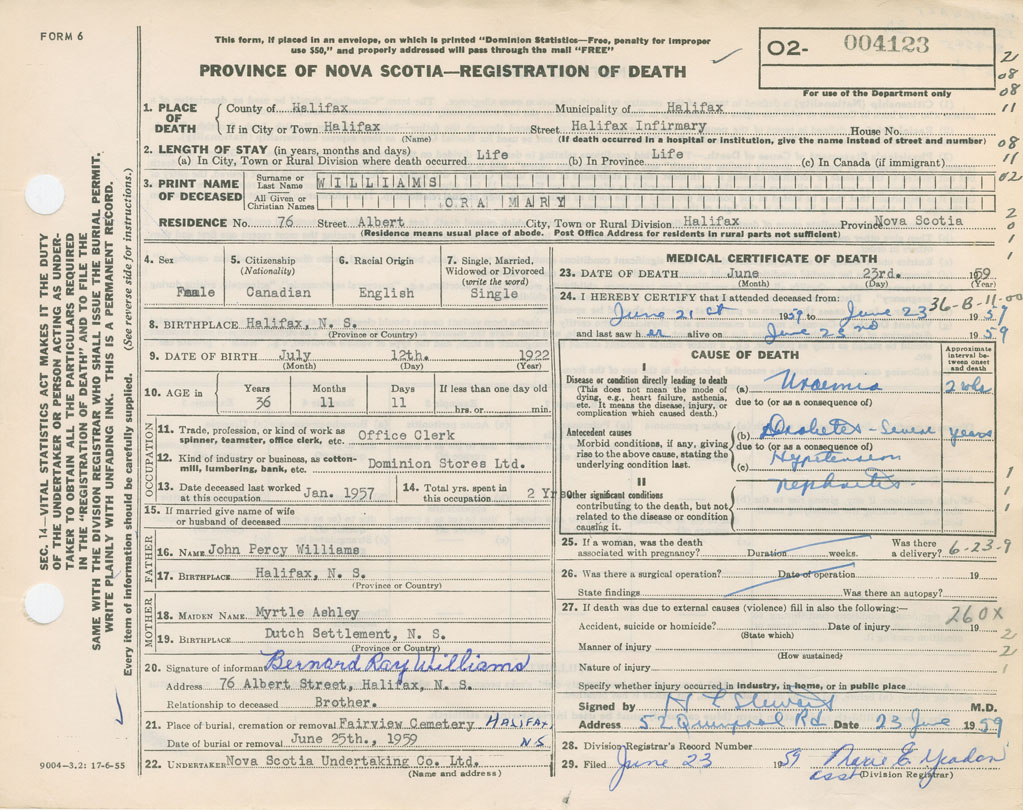 FORM 6
This form, if placed in an envelope, on which is printed "Dominion Statistics—Free, penalty for improper
use $50," and properly addressed will pass through the mail "FREE"
PROVINCE OF NOVA SCOTIA—REGISTRATION OF DEATH
02- 004123
For use of the Department only
2
08
08
11
08
11
02
2
0
1
SEC. 14—VITAL STATISTICS ACT MAKES IT THE DUTY
OF THE UNDERTAKER OR PERSON ACTING AS UNDER-
TAKER TO OBTAIN ALL THE PARTICULARS REQUIRED
IN THE "REGISTRATION OF DEATH" AND TO FILE THE
SAME WITH THE DIVISION REGISTRAR WHO SHALL ISSUE THE BURIAL PERMIT.
WRITE PLAINLY WITH UNFADING INK. THIS IS A PERMANENT RECORD.
Every item of information should be carefully supplied. (See reverse side for instructions.)
1. PLACE OF DEATH
County of Halifax Municipality of Halifax
If in City or Town Halifax Street Halifax Infirmary House No.
(Name) (If death occurred in a hospital or institution, give the name instead of street and number)
2. LENGTH OF STAY (in years, months and days)
(a) In City, Town or Rural Division where death occurred Life (b) In Province Life (c) In Canada (if immigrant)
3. PRINT NAME OF DECEASED
Surname or Last Name WILLIAMS
All Given or Christian Names ORA MARY
RESIDENCE No. 76 Street Albert City, Town or Rural Division Halifax Province Nova Scotia
(Residence means usual place of abode. Post Office Address for residents in rural parts not sufficient)
4. Sex
Female
5. Citizenship (Nationality)
Canadian
6. Racial Origin
English
7. Single, Married, Widowed or Divorced (write the word)
Single
8. BIRTHPLACE Halifax, N. S.
(Province or Country)
9. DATE OF BIRTH July 12th. 1922
(Month) (Day) (Year)
10. AGE in Years Months Days If less than one day old
36 11 11 hrs. or min.
OCCUPATION
11. Trade, profession, or kind of work as
spinner, teamster, office clerk, etc. Office Clerk
12. Kind of industry or business, as cotton-
mill, lumbering, bank, etc. Dominion Stores Ltd.
13. Date deceased last worked
at this occupation Jan. 1957
14. Total yrs. spent in
this occupation 2 Yrs
15. If married give name of wife
or husband of deceased
FATHER
16. NAME John Percy Williams
17. BIRTHPLACE Halifax, N. S.
(Province or Country)
MOTHER
18. MAIDEN NAME Myrtle Ashley
19. BIRTHPLACE Dutch Settlement, N. S.
(Province or Country)
20. Signature of informant Bernard Ray Williams
Address 76 Albert Street, Halifax, N. S.
Relationship to deceased Brother.
21. Place of burial, cremation or removal Fairview Cemetery HALIFAX
Date of burial or removal June 25th., 1959 N.S.
22. UNDERTAKER Nova Scotia Undertaking Co. Ltd.
(Name and address)
9004—3.2: 17-6-55
MEDICAL CERTIFICATE OF DEATH
23. DATE OF DEATH June 23rd. 1959
(Month) (Day) (Year)
36-B-11-00
24. I HEREBY CERTIFY that I attended deceased from:
June 21st 1959 to June 23 1959
and last saw her alive on June 22nd 1959
CAUSE OF DEATH
Approximate interval between onset and death
I
Disease or condition directly leading to death
(This does not mean the mode of
dying, e.g., heart failure, asthenia,
etc. It means the disease, injury, or
complication which caused death.)
(a) Uraemia 2 wks
due to (or as a consequence of)
Antecedent causes
Morbid conditions, if any, giving
rise to the above cause, stating the
underlying condition last.
(b) Diabetes - Severe years
due to (or as a consequence of)
(c) Hypertension
II
Nephritis
Other significant conditions
contributing to the death, but not
related to the disease or condition
causing it.
1
1
1
25. If a woman, was the death
associated with pregnancy? Duration weeks. Was there
a delivery? 6-23-9
26. Was there a surgical operation? Date of operation 19
State findings Was there an autopsy?
27. If death was due to external causes (violence) fill in also the following:—
260X
Accident, suicide or homicide? Date of injury 19
(State which)
Manner of injury
(How sustained)
Nature of injury
2
2
1
Specify whether injury occurred in industry, in home, or in public place
Signed by H L Stewart M.D.
Address 52 Quinpool Rd Date 23 June 1959
28. Division Registrar's Record Number
29. Filed June 23 1959 Marie E.
asst (Division Registrar)